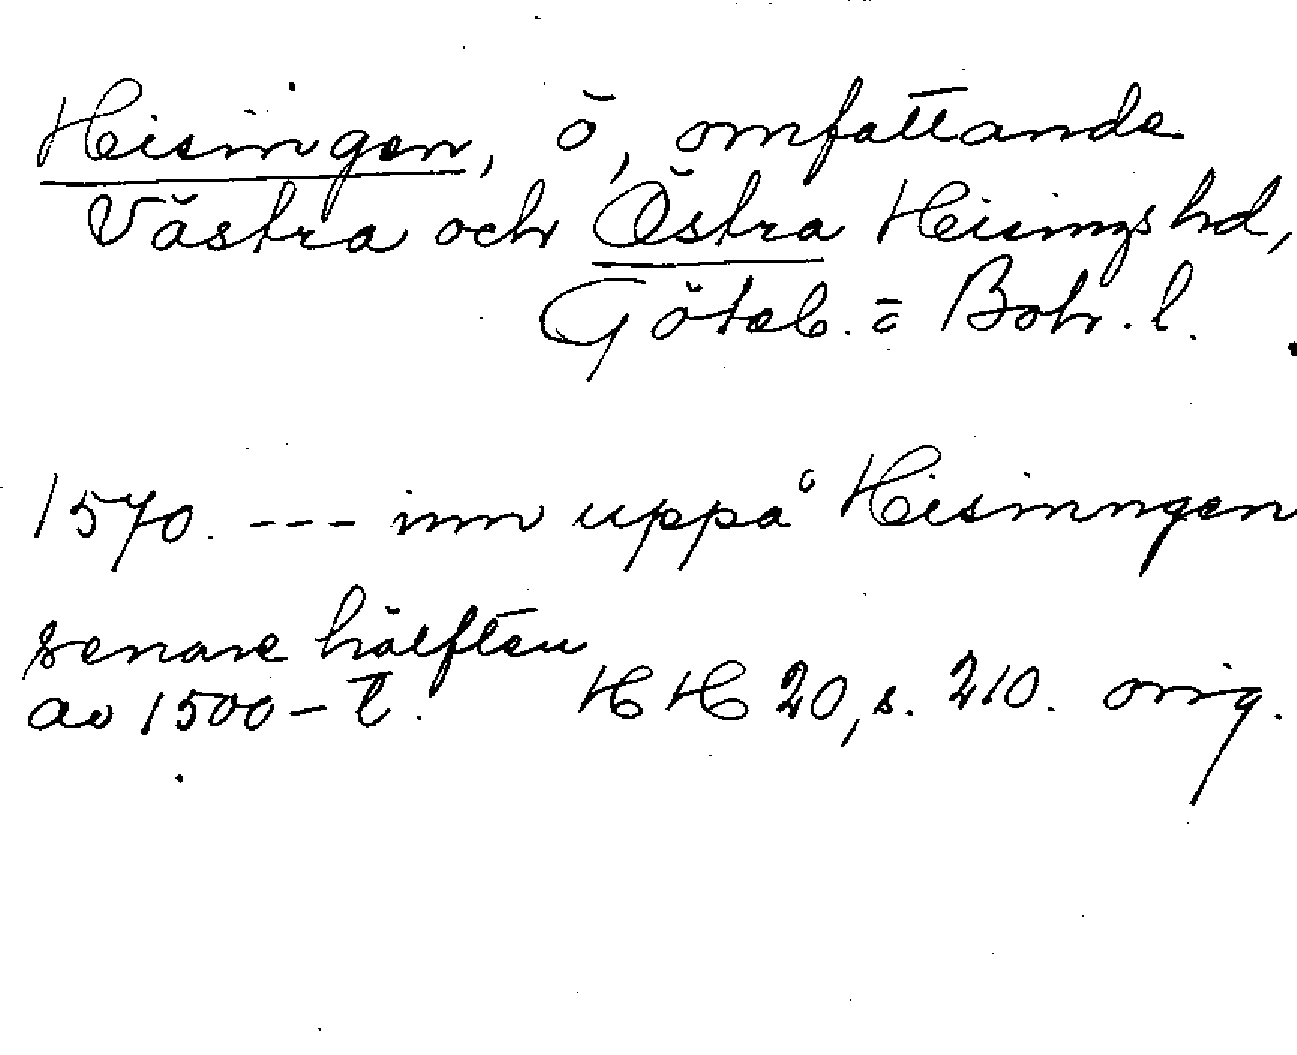 Hisingen, ö, omfattande
Västra och Östra Hisings hd,
Göteb. o Boh. l.
1570. --- inn uppå Hisinngen
senare hälften
av 1500-t. HH 20, s. 210. orig.